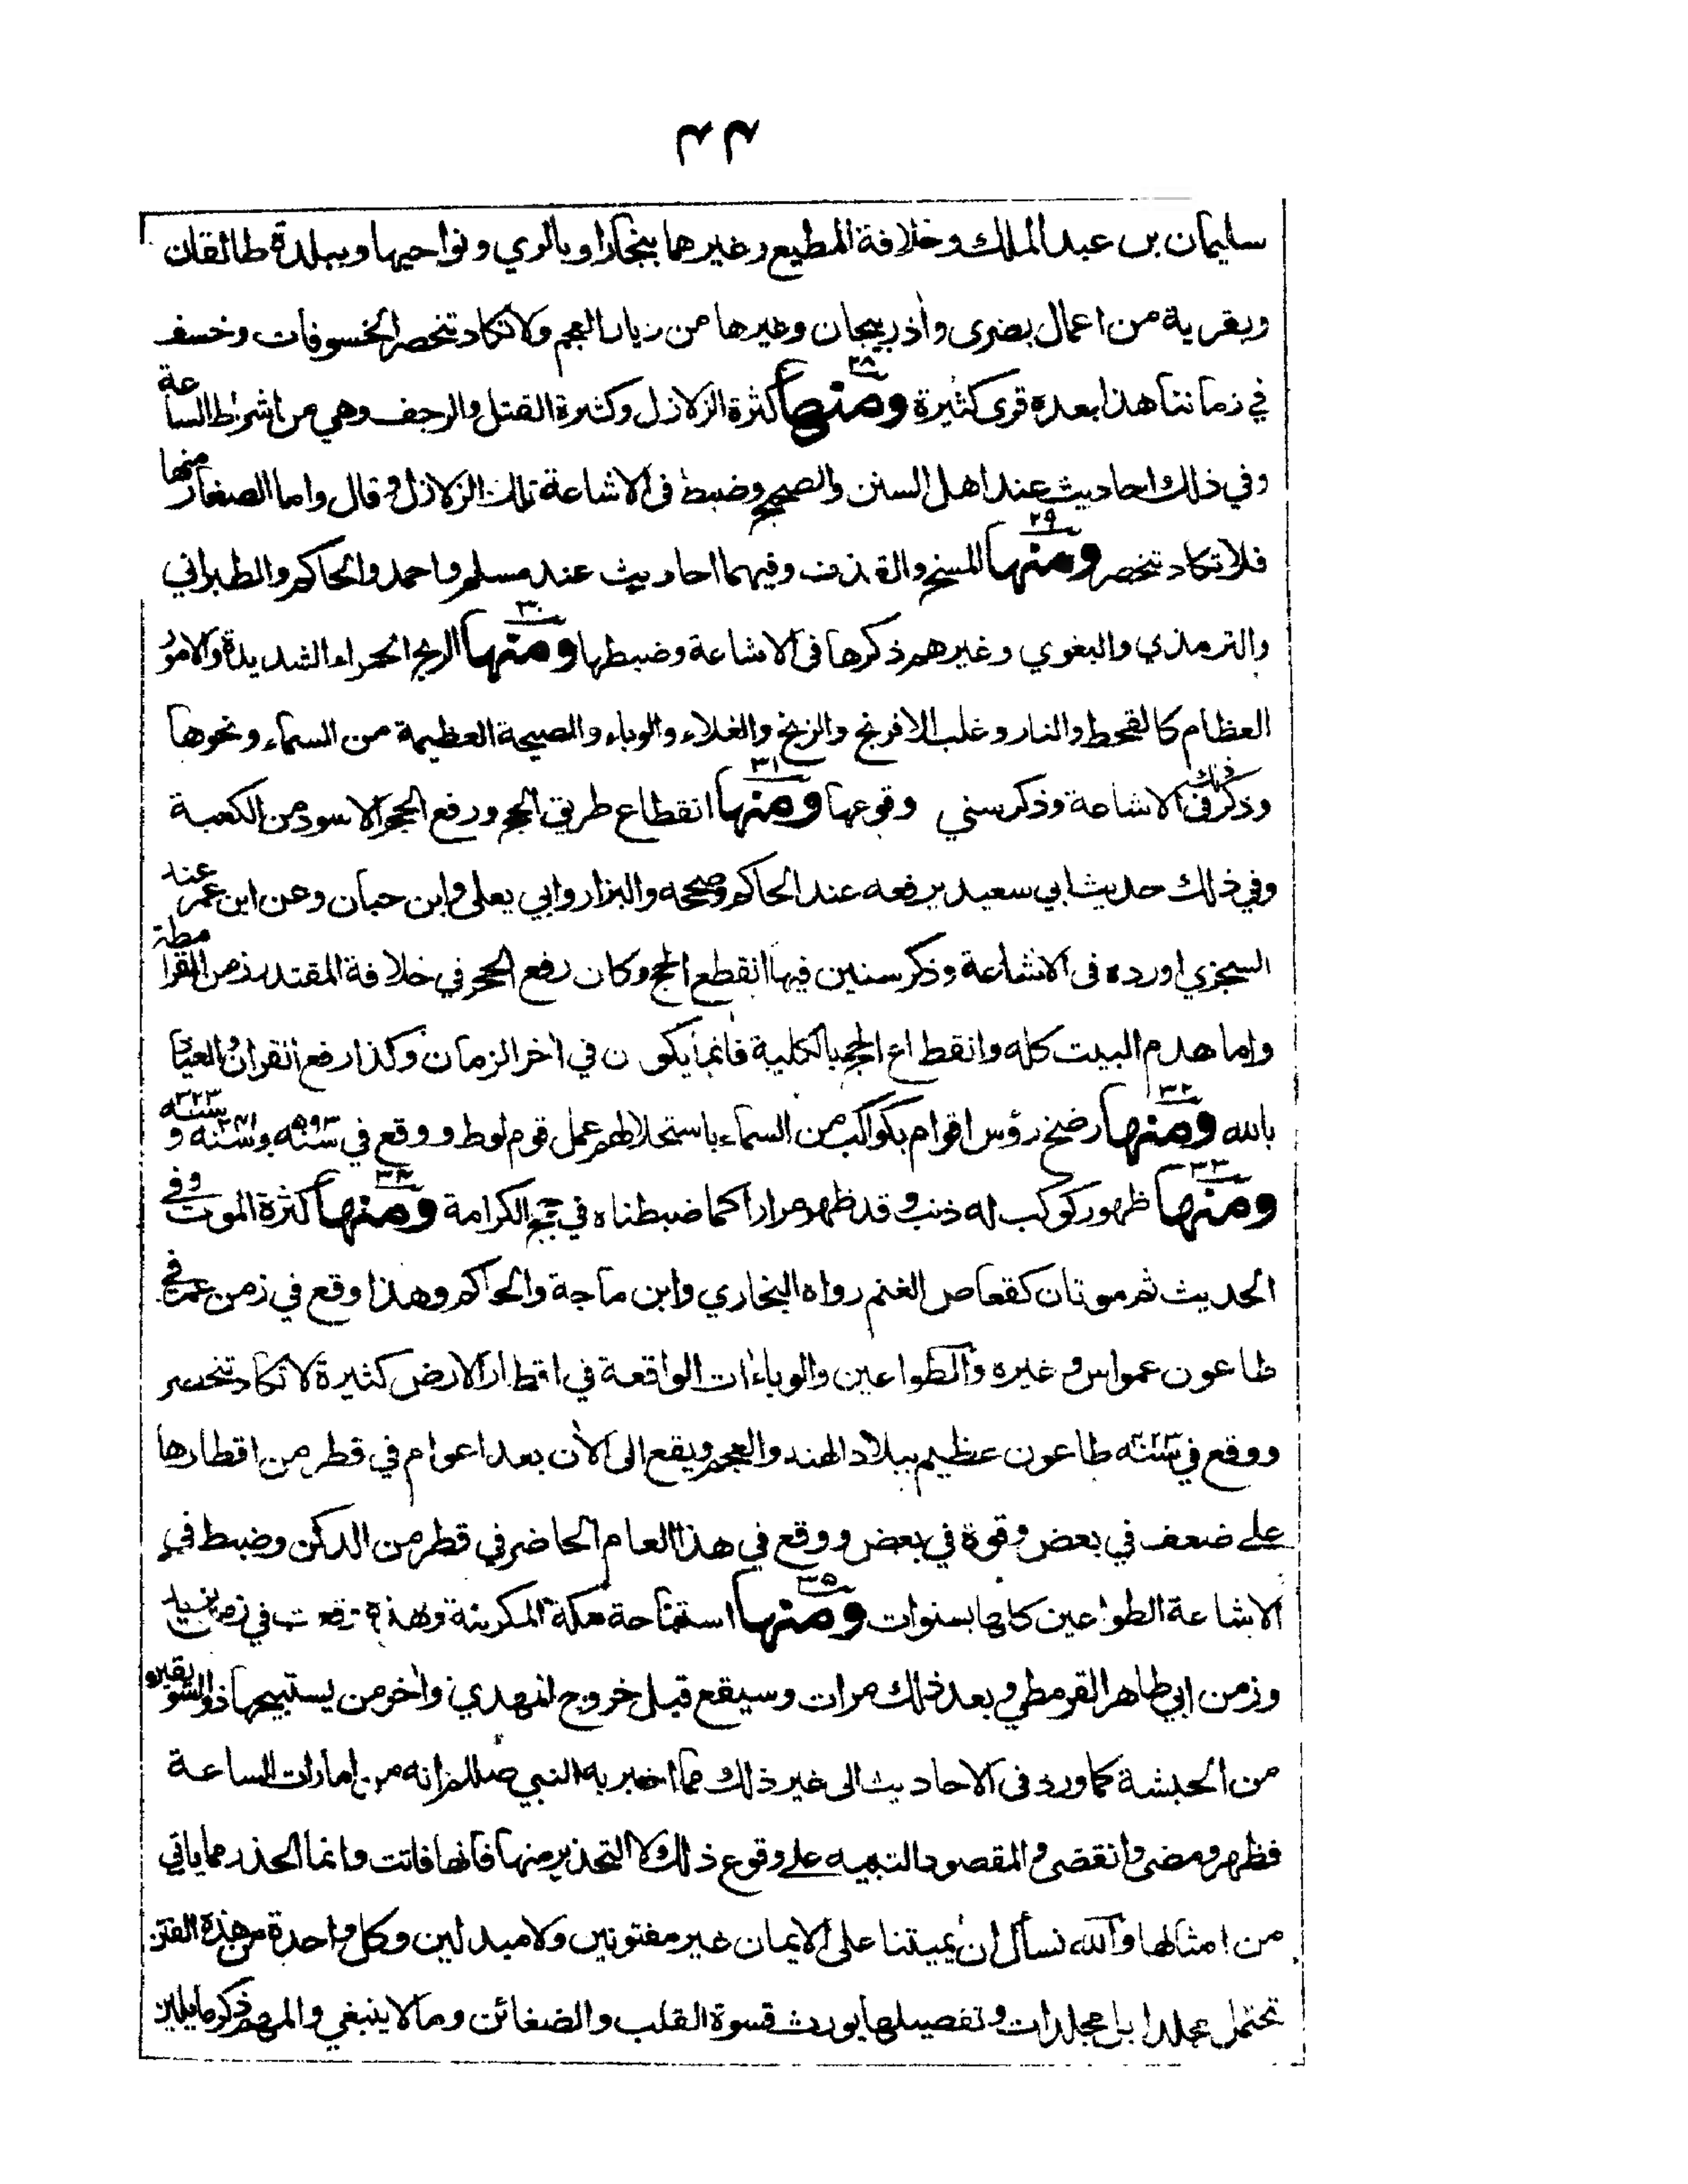 ٣٣
سليمان بن عبد الملك وخلافة المطيع وغيرهما ببخارا وبالري ونواحيها وببلدة طالقان
وبقرية من اعمال بصرى واذربيجان وغيرها من ديار العجم ولا تكاد تنحصر الخسوفات وخسف
في زماننا هذا بعده قرى كثيرة ومنها ٢٨ كثرة الزلازل وكثرة القتل والرجف وهي من اشراط الساعة
وفي ذلك احاديث عند اهل السنن والصحيح وضبط فى الاشاعة تلك الزلازل وقال واما الصغار منها
فلا تكاد تنحصر ومنها ٢٩ المسخ والقذف وفيهما احاديث عند مسلم واحمد والحاكم والطبراني
والترمذي والبغوي وغيرهم ذكرها فى الاشاعة وضبطها ومنها ٣٠ الريح الحمراء الشديدة والامور
العظام كالقحط والنار وغلب الافرنج والزنج والغلاء والوباء والصيحة العظيمة من السماء ونحوها
وذكر ذلك فى الاشاعة وذكر سني وقوعها ومنها ٣١ انقطاع طريق الحج ورفع الحجر الاسود من الكعبة
وفي ذلك حديث ابي سعيد يرفعه عند الحاكم وصححه والبزار وابي يعلى وابن حبان وعن ابن عمر عند
السجزي اورده فى الاشاعة وذكر سنين فيها انقطع الحج وكان رفع الحجر في خلافة المقتدر زمن القرامطة
واما هدم البيت كله وانقطاع الحج بالكلية فانما يكون في اخر الزمان وكذا رفع القران والعياذ
بالله ومنها ٣٢ رضخ رؤس اقوام بكواكب من السماء باستحلالهم عمل قوم لوط ووقع في سنه ٥٩٣ وسنه ٢٤١ و سنه ٣٢٣
ومنها ٣٣ ظهور كوكب له ذنب وقد ظهر مرارا كما ضبطناه في حجج الكرامة ومنها ٣٤ كثرة الموت وفي
الحديث ثم موتان كقعاص الغنم رواه البخاري وابن ماجة والحاكم وهذا وقع في زمن عمر في
طاعون عمواس وغيره والطواعين والوباءات الواقعة في اقطار الارض كثيرة لا تكاد تنحصر
ووقع في سنه طاعون عظيم ببلاد الهند والعجم ويقع الى الان بعد اعوام في قطر من اقطارها
على ضعف في بعض وقوة في بعض ووقع في هذا العام الحاضر في قطر من الدكن وضبط في
الاشاعة الطواعين كلها بسنوات ومنها ٣٥ استباحة مكة المكرمة وهذه وقعت في زمن يزيد
وزمن ابي طاهر القرمطي وبعد ذلك مرات وسيقع قبل خروج المهدي واخر من يستبيحها ذو السويقتين
من الحبشة كما ورد فى الاحاديث الى غير ذلك مما اخبر به النبي صللم انه من امارات الساعة
فظهر ومضى وانقضى والمقصود التنبيه على وقوع ذلك لا التحذير منها فانها فاتت وانما الحذر مما ياتي
من امثالها والله نسأل ان يميتنا على الايمان غير مفتونين ولا مبدلين وكل واحدة من هذه الفتن
تحتمل مجلدا بل مجلدات وتفصيلها يورث قسوة القلب والضغائن وما لا ينبغي والمهم ذكر ما يلين